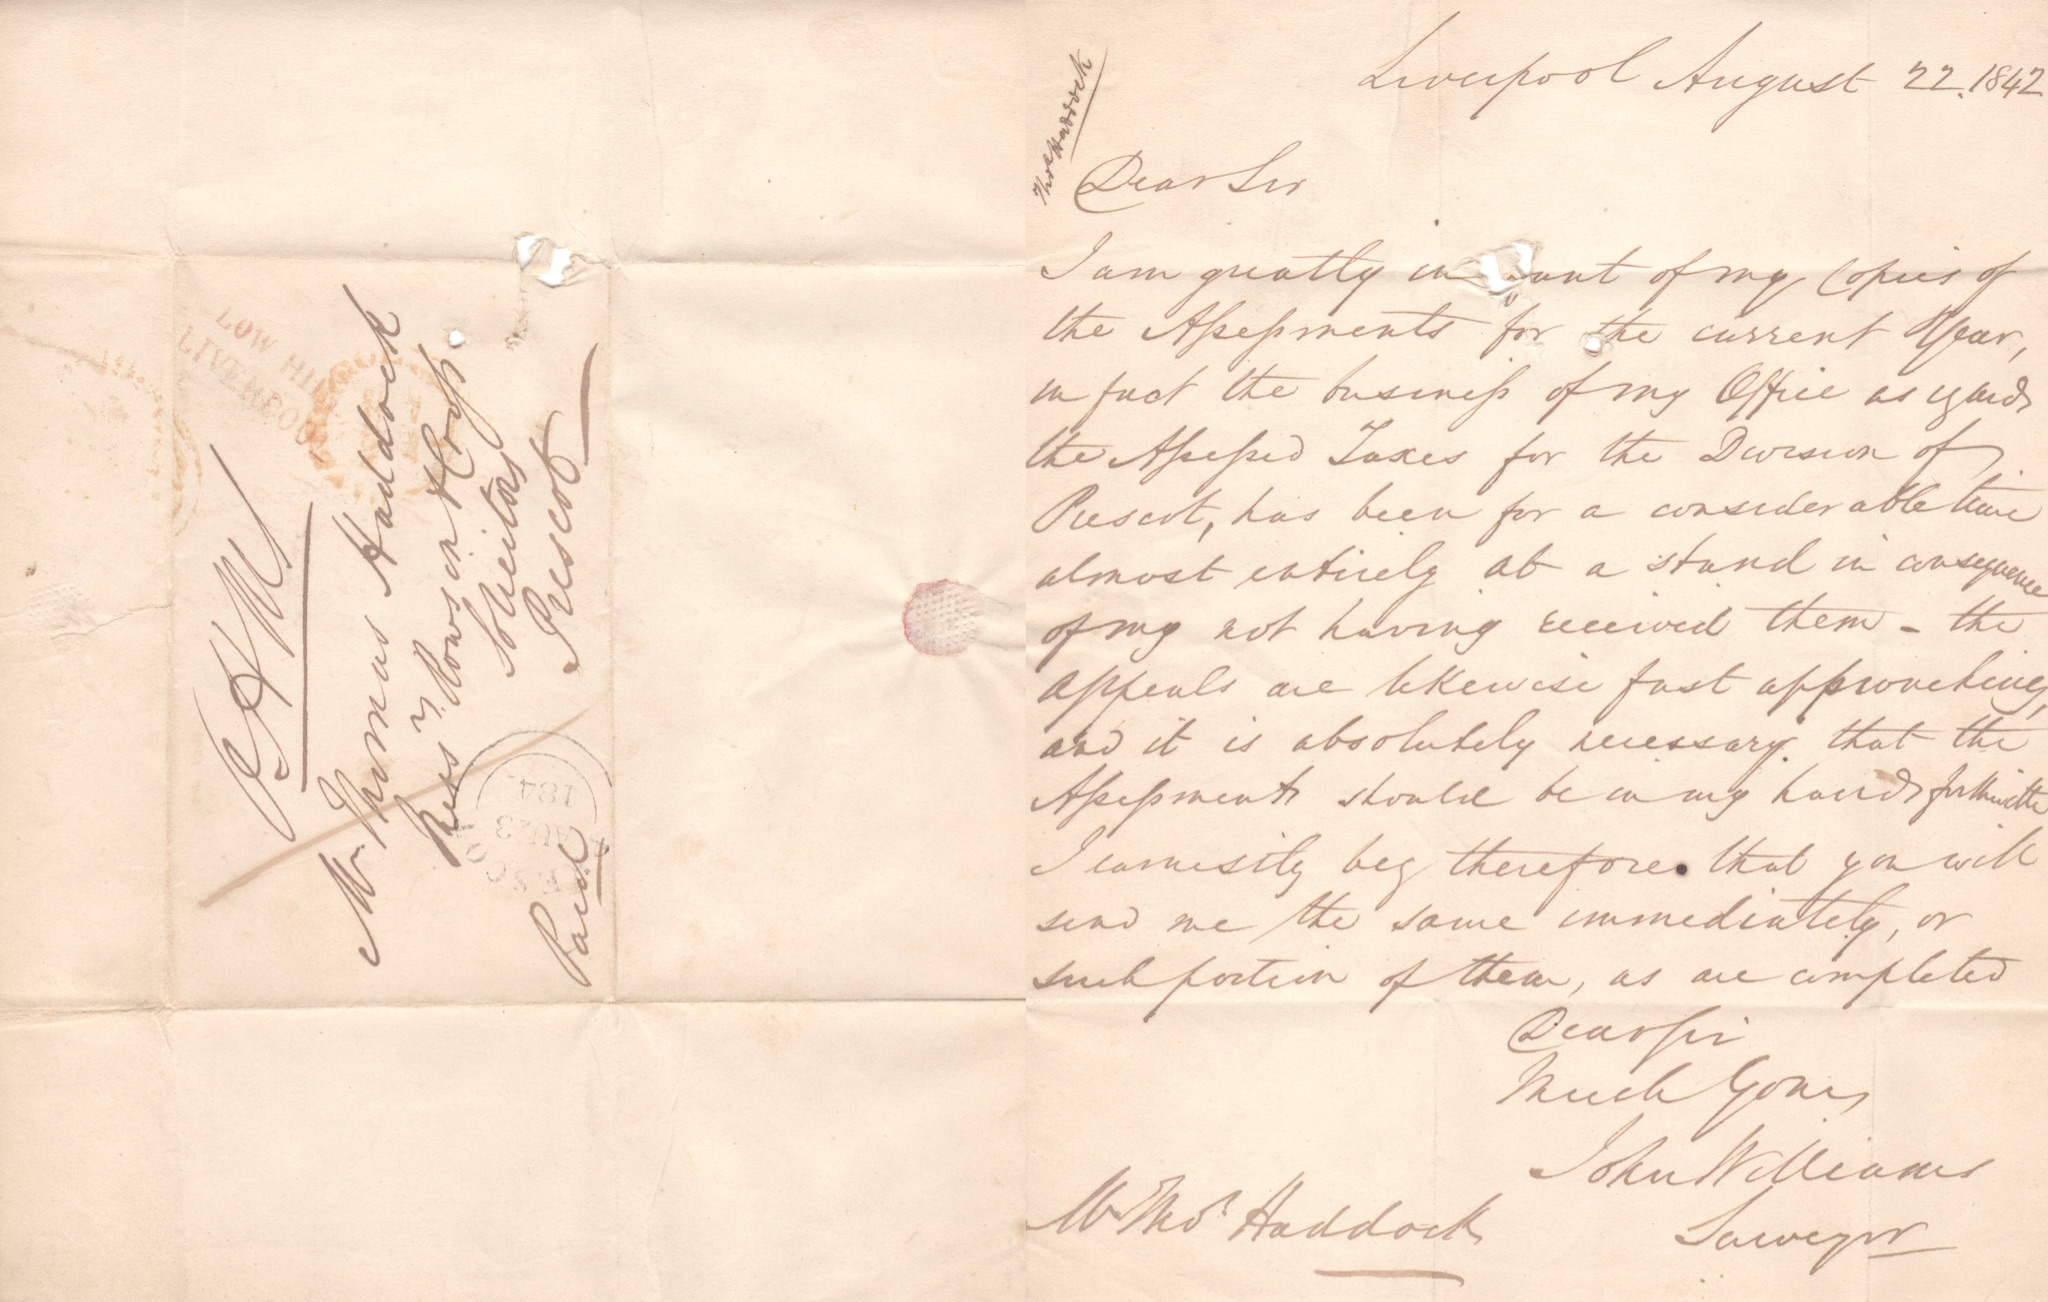 LOW HILL
LIVERPOOL
OHM
Mr. Thomas Haddock
Messrs Rowson & Cross
Solicitors
Prescot
Paid
184
AU 23
Thos Haddock
Liverpool August 22. 1842
Dear Sir
I am greatly in want of my Copies of
the Assessments for the current Year,
in fact the business of my Office as regards
the Assessed Taxes for the Division of
Prescot, has been for a considerable time
almost entirely at a stand in consequence
of my not having received them - the
Appeals are likewise fast approaching,
and it is absolutely necessary that the
Assessments should be in my hands forthwith
I earnestly beg therefore that you will
send me the same immediately, or
such portion of them, as are completed
Dear Sir
Much Yours
John Williams
Surveyor
Mr. Thos. Haddock